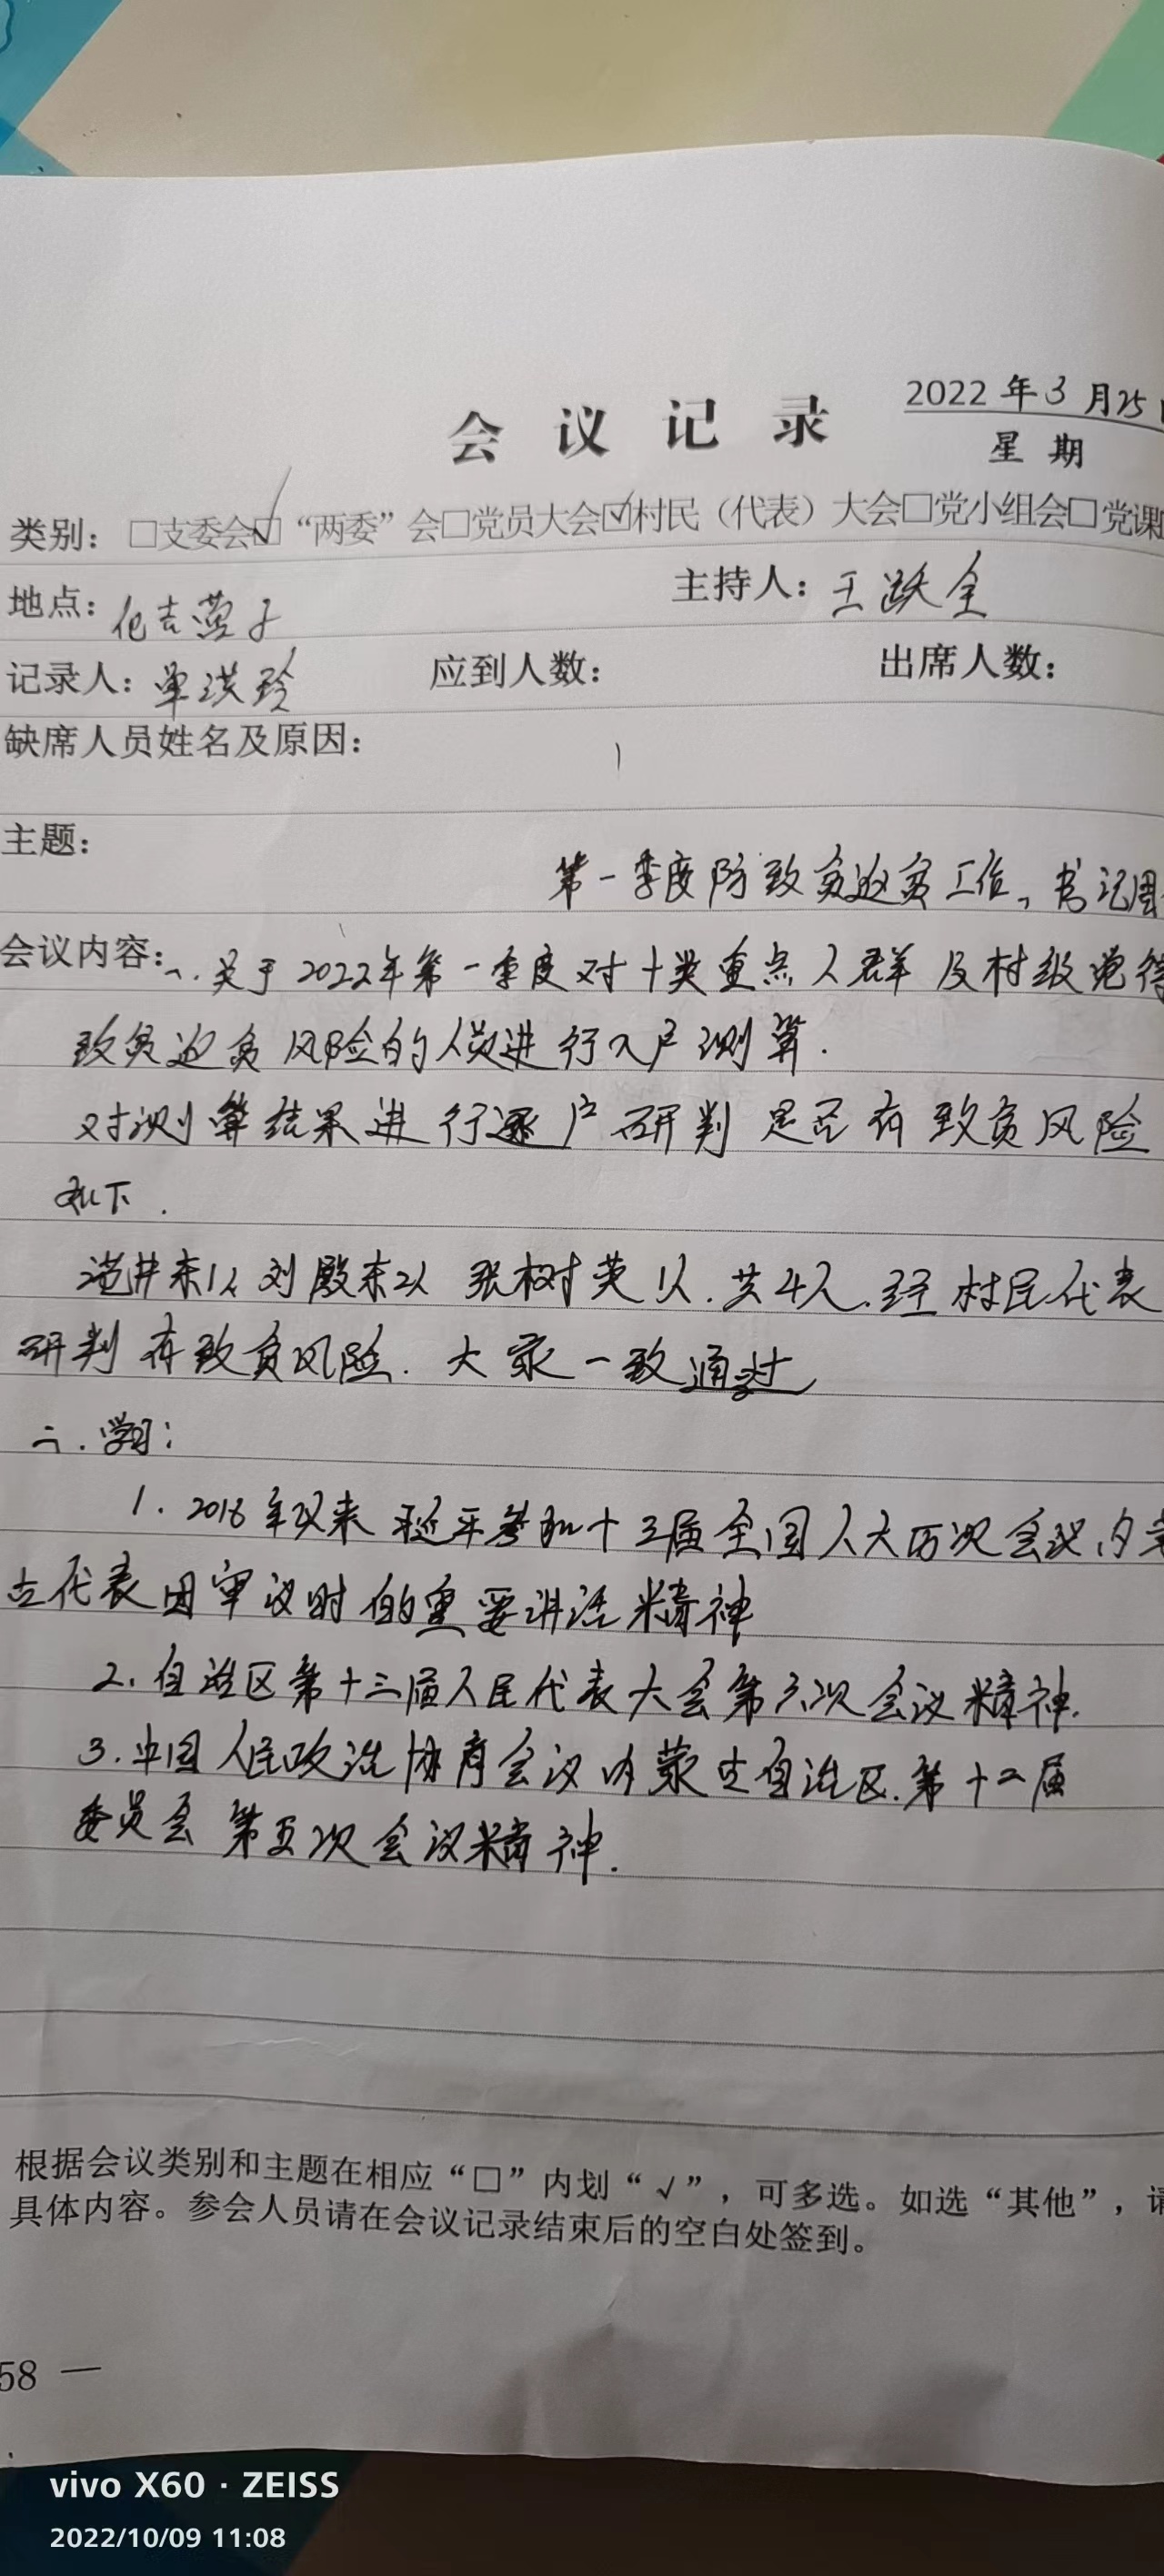 会议记录
2022 年 3 月 25
星 期
类别：□支委会☑“两委”会□党员大会☑村民（代表）大会□党小组会□党课
地点： 主持人：王跃全
记录人：单洪玲 应到人数： 出席人数：
缺席人员姓名及原因：
主题：
第一季度防致贫返贫工作，书记
会议内容：一.关于2022年第一季度对十类重点人群及村级觉得
致贫返贫风险的人员进行入户测算.
对测算结果进行逐户研判是否有致贫风险
如下.
井东1人 刘殿东2人 张树英1人.共4人.经村民代表
研判有致贫风险.大家一致通过
二.学习：
1.2018年以来 近平参加十三届全国人大历次会议内蒙
古代表团审议时的重要讲话精神
2.自治区第十三届人民代表大会第六次会议精神.
3.中国人民政治协商会议内蒙古自治区.第十二届
委员会第五次会议精神.
根据会议类别和主题在相应“□”内划“√”，可多选。如选“其他”，请
具体内容。参会人员请在会议记录结束后的空白处签到。
58 —
vivo X60 · ZEISS
2022/10/09 11:08